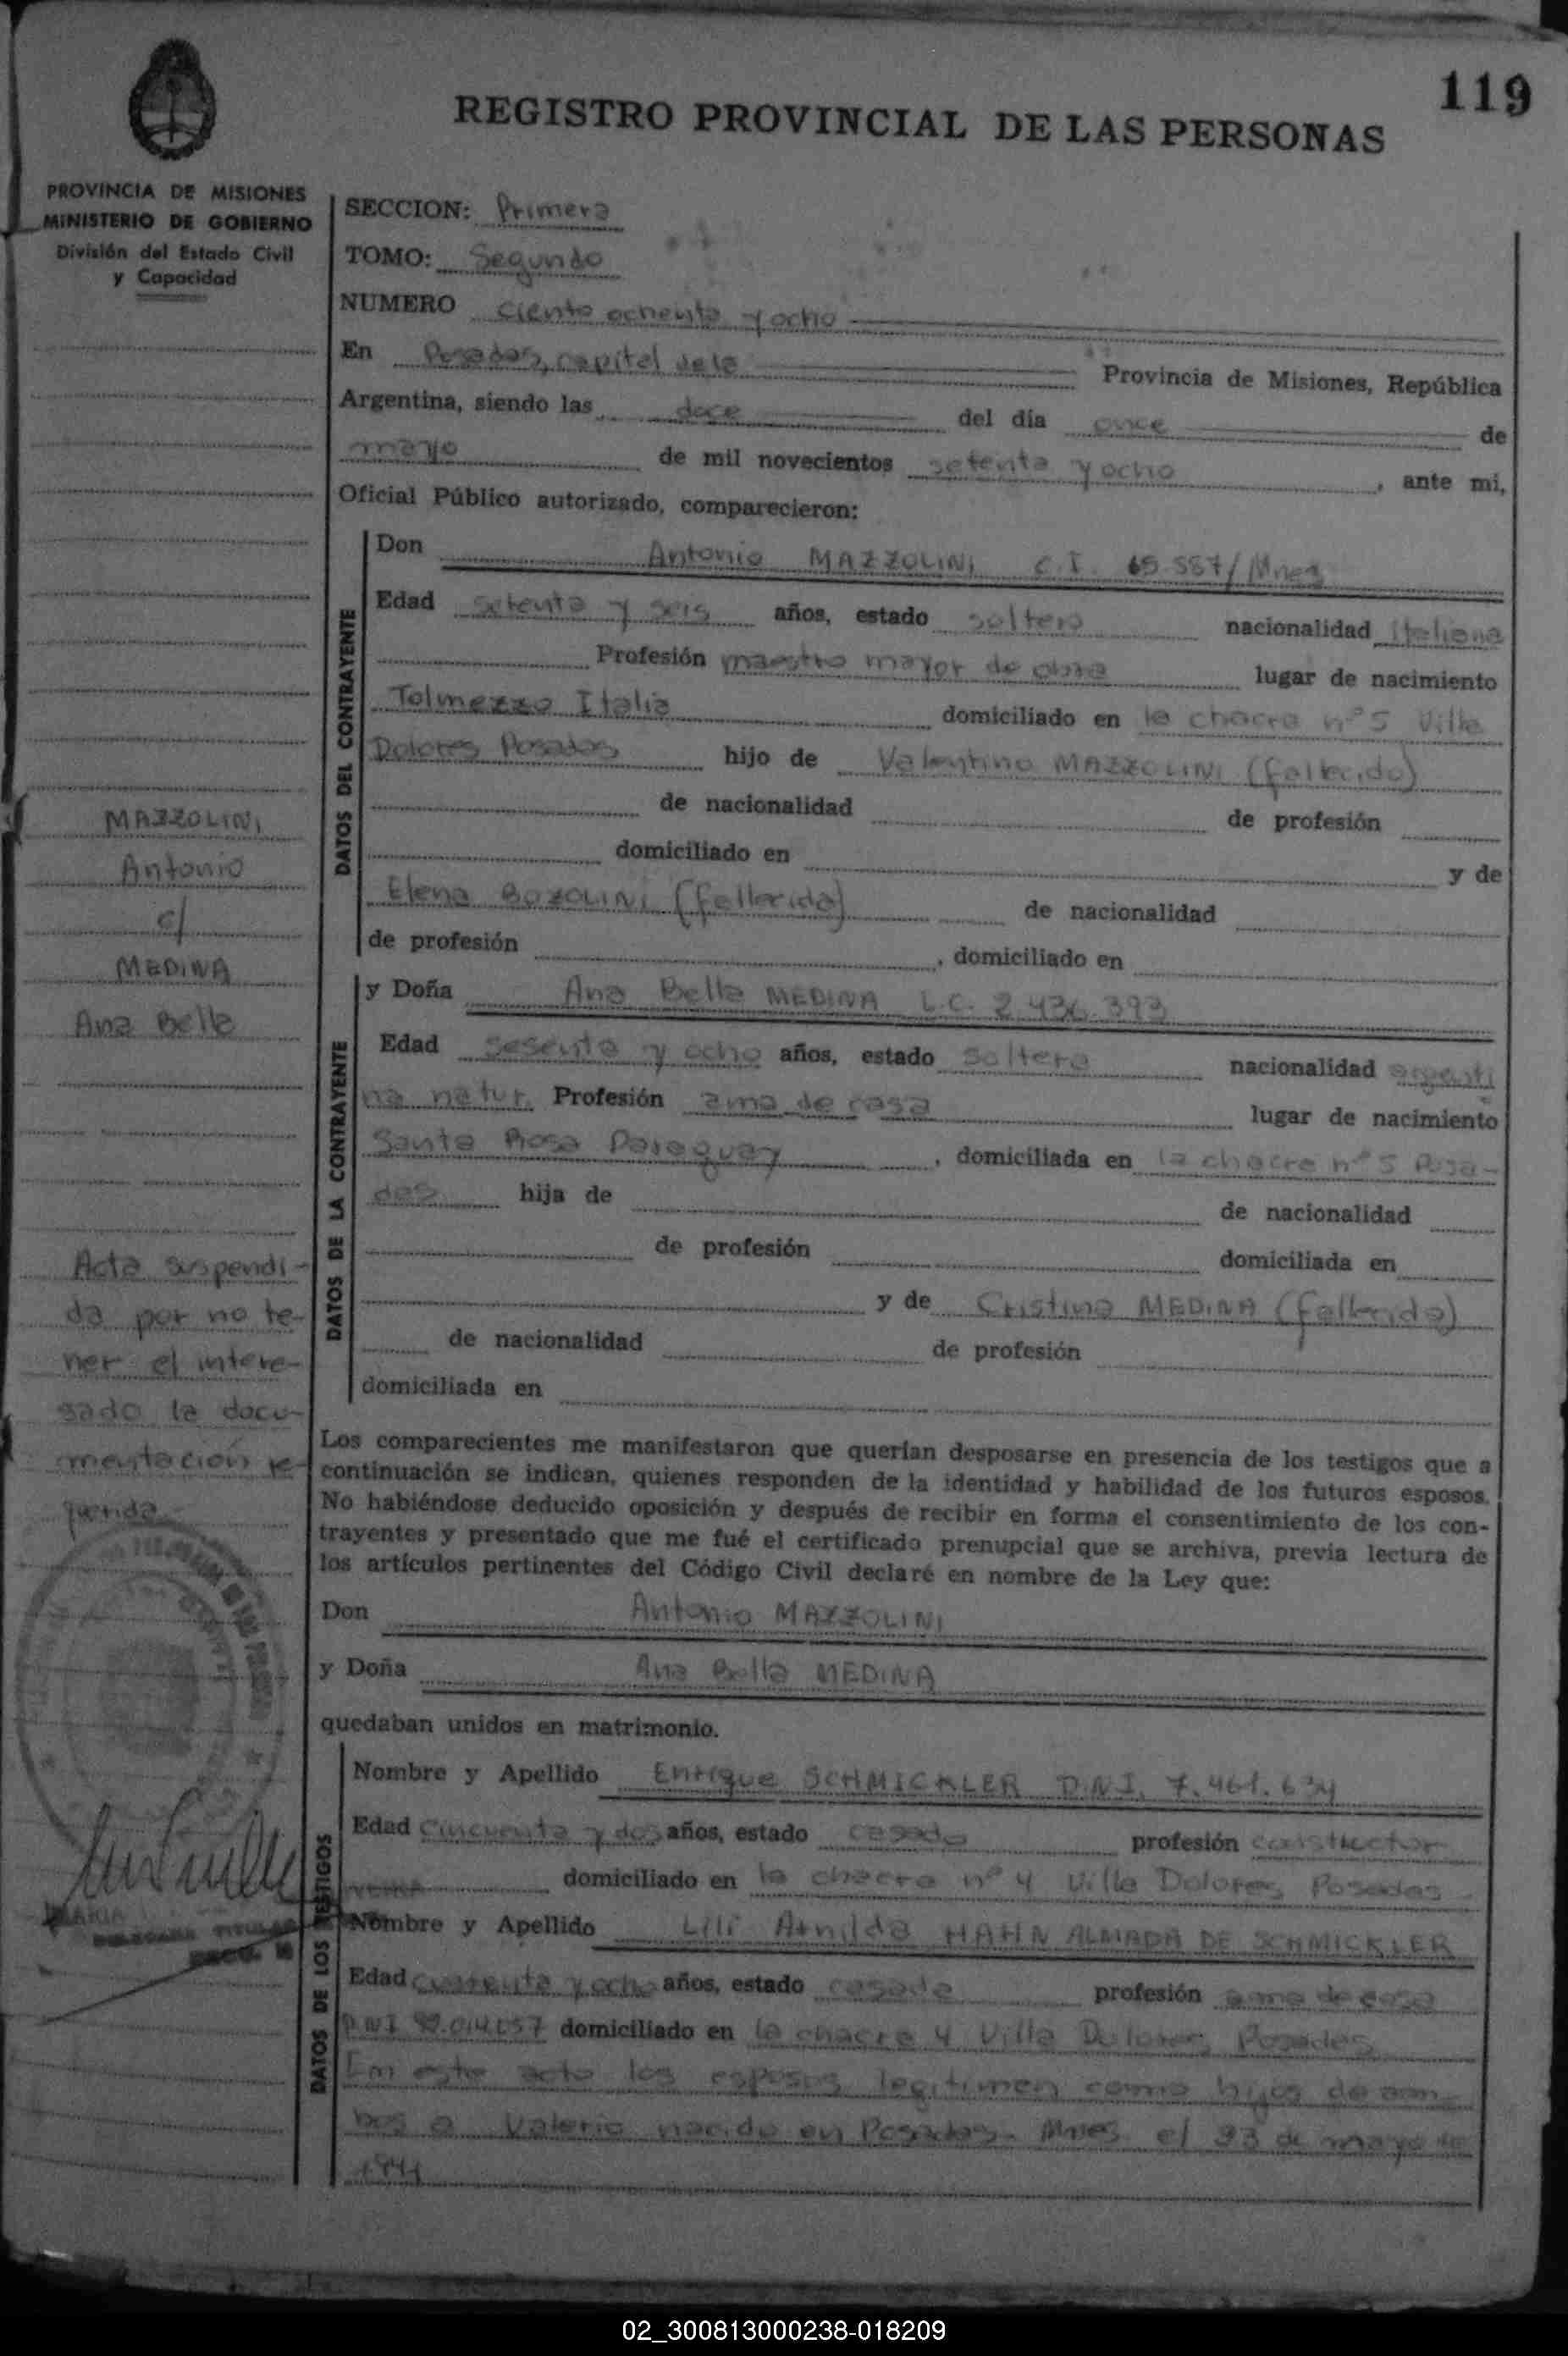 119
REGISTRO PROVINCIAL DE LAS PERSONAS
PROVINCIA DE MISIONES
MINISTERIO DE GOBIERNO
División del Estado Civil
y Capacidad
SECCION: Primera
TOMO: Segundo
NUMERO ciento ochenta y ocho
En Posadas, capital de la Provincia de Misiones, República
Argentina, siendo las doce del día once de
mayo de mil novecientos setenta y ocho, ante mi,
Oficial Público autorizado, comparecieron:
DATOS DEL CONTRAYENTE
Don Antonio MAZZOLINI C.I. 65.557/Mnes
Edad setenta y seis años, estado soltero nacionalidad italiana
Profesión maestro mayor de obra lugar de nacimiento
Tolmezzo Italia domiciliado en la chacra nº 5 Villa
Dolores Posadas hijo de Valentino MAZZOLINI (fallecido)
de nacionalidad de profesión
domiciliado en y de
Elena BOZOLINI (fallecida) de nacionalidad
de profesión , domiciliado en
DATOS DE LA CONTRAYENTE
y Doña Ana Bella MEDINA L.C. 2.436.393
Edad sesenta y ocho años, estado soltera nacionalidad argenti
na natur. Profesión ama de casa lugar de nacimiento
Santa Rosa Paraguay, domiciliada en la chacra nº 5 Posa-
das hija de de nacionalidad
de profesión domiciliada en
y de Cristina MEDINA (fallecida)
de nacionalidad de profesión
domiciliada en
Los comparecientes me manifestaron que querían desposarse en presencia de los testigos que a
continuación se indican, quienes responden de la identidad y habilidad de los futuros esposos.
No habiéndose deducido oposición y después de recibir en forma el consentimiento de los con-
trayentes y presentado que me fué el certificado prenupcial que se archiva, previa lectura de
los artículos pertinentes del Código Civil declaré en nombre de la Ley que:
Don Antonio MAZZOLINI
y Doña Ana Bella MEDINA
quedaban unidos en matrimonio.
DATOS DE LOS TESTIGOS
Nombre y Apellido Enrique SCHMICKLER D.N.I. 7.461.634
Edad cincuenta y dos años, estado casado profesión constructor
domiciliado en la chacra nº 4 Villa Dolores Posadas
Nombre y Apellido Lili Arnilda HAHN ALMADA DE SCHMICKLER
Edad cuarenta y ocho años, estado casada profesión ama de casa
D.N.I. domiciliado en la chacra 4 Villa Dolores Posadas
En este acto los esposos legitimen como hijos de am-
bos a Valerio nacido en Posadas. Mnes el 23 de mayo de
1941
MAZZOLINI
Antonio
c/
MEDINA
Ana Bella
Acta suspendi-
da por no te-
ner el intere-
sado la docu-
mentación re-
querida
02_300813000238-018209